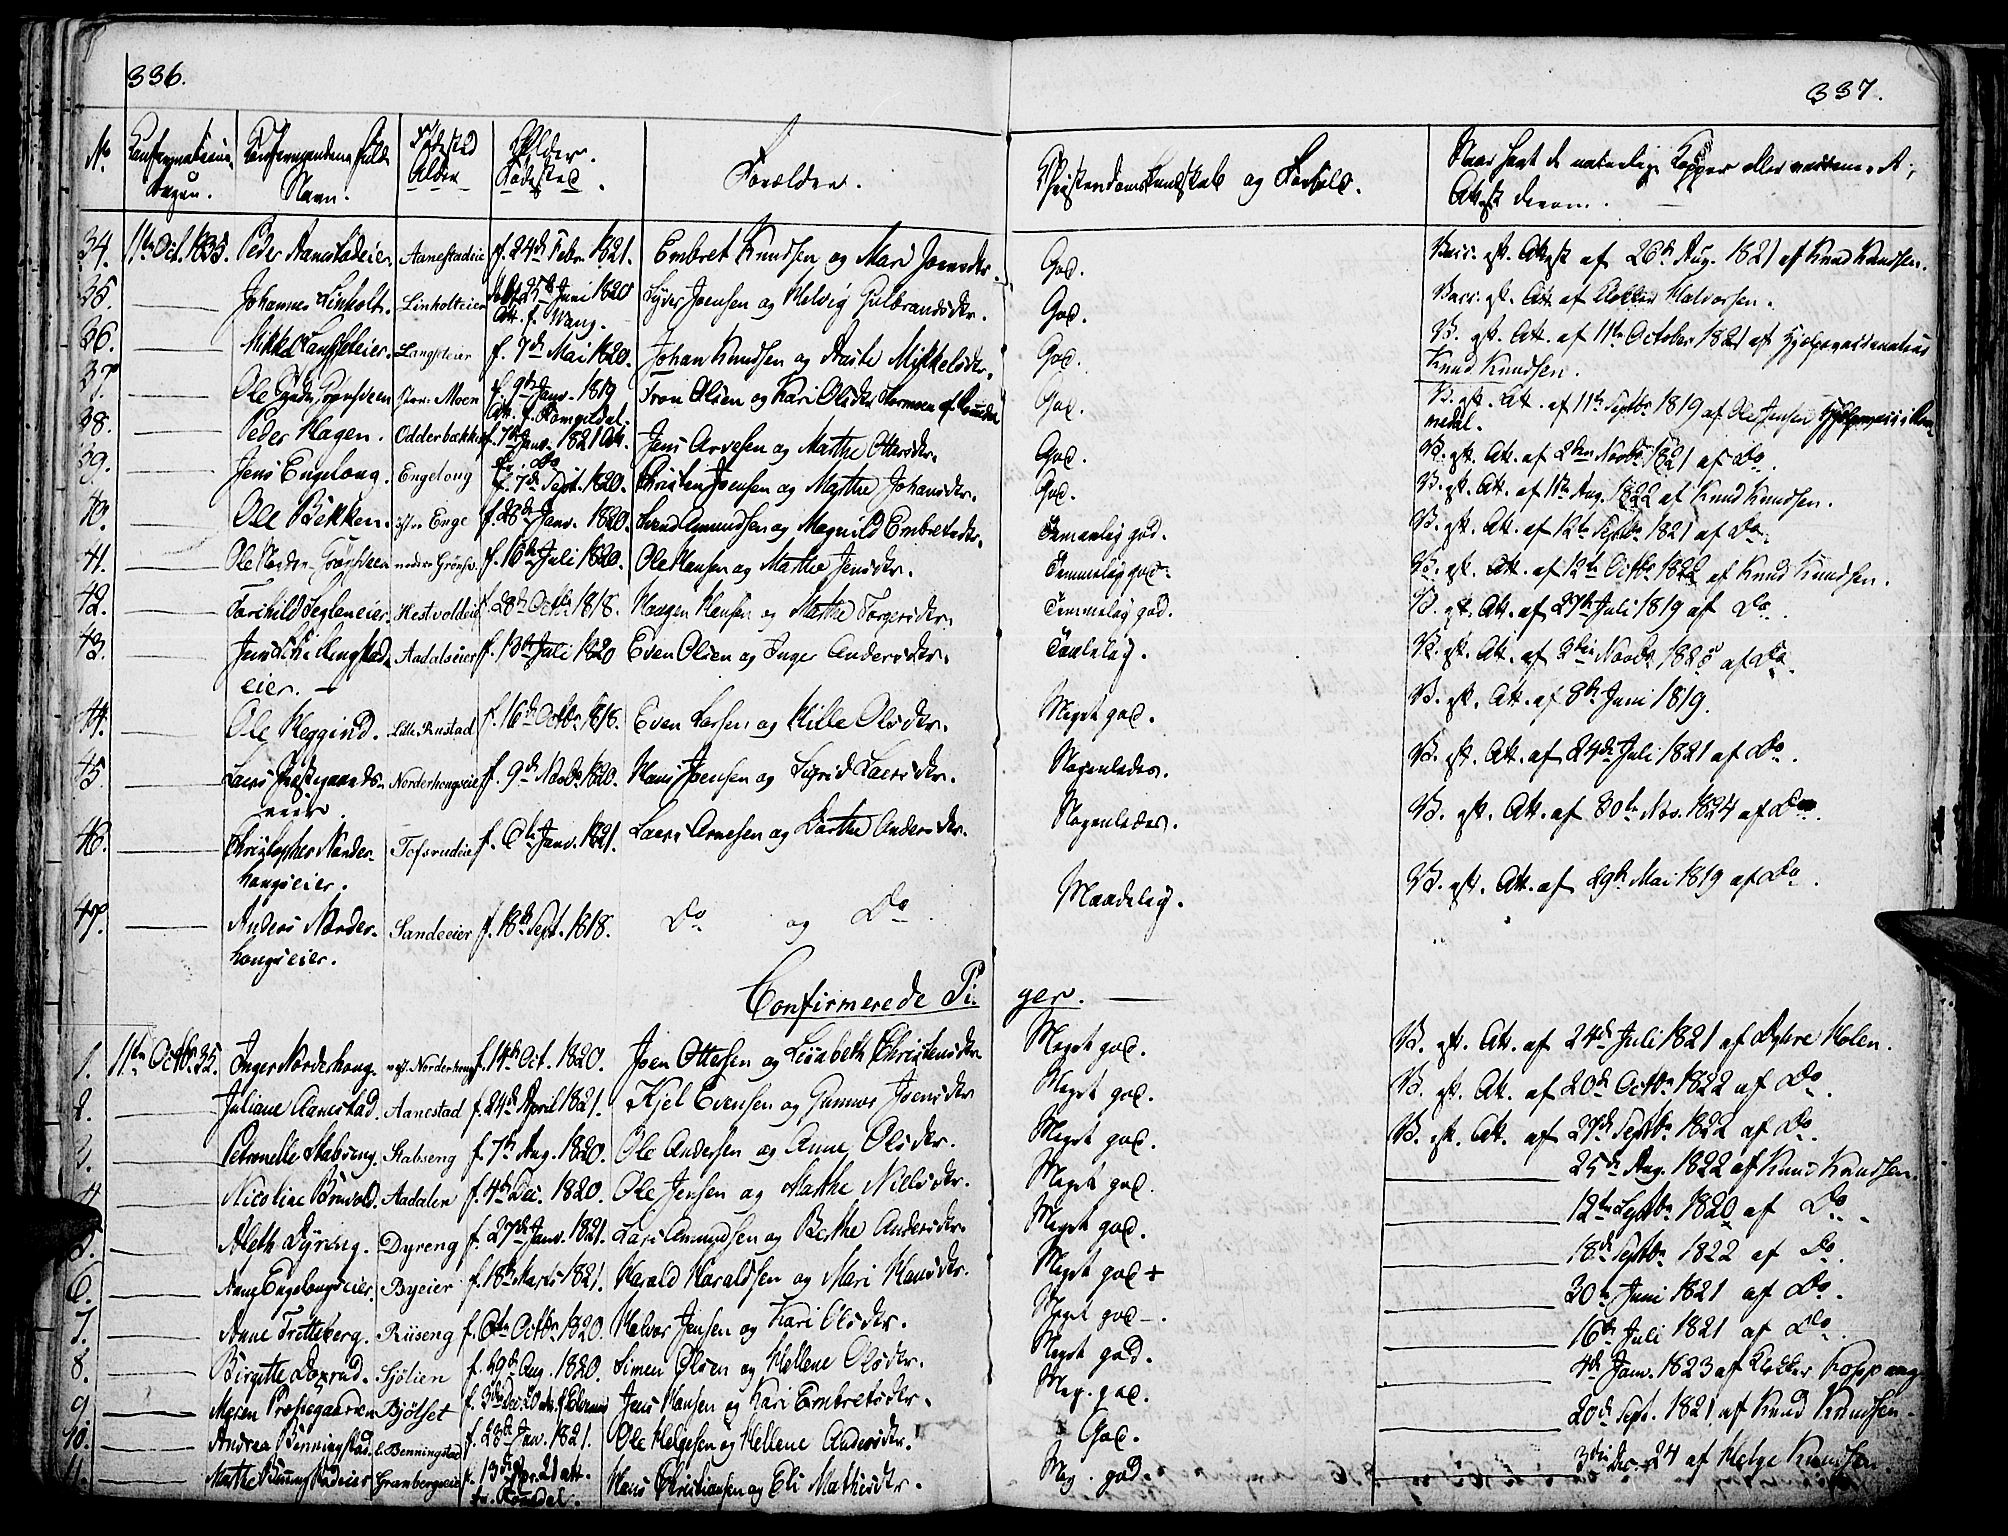 336.
337.
No Confirmations Dagen. Confirmandens fulde Navn. Fødested Alder Alder. Fødested. Forældre. Christendoms Kundskab og Forhold. Naar havt de naturlige Kopper eller vaccineret; Attest derom.
34. 11te Oct. 1835. Peder Aanestadeier. Aanestadeie f. 24de Febr. 1821. Embret Knudsen og Mari Joensdtr. God. Vacc. efter Attest af 26de Aug. 1821 af Knud Knudsen.
35. Johannes Linholt. Linholteier 25de Juni 1820 Att. f. Wang. Syver Joensen og Helvig Gulbrandsdtr. God. Vacc. eft. Att. af Halvorsen.
36. Mikkel Langseteier. Langseteier f. 7de Mai 1820. Johan Knudsen og Marte Mikkelsdtr. God. V. eft. Att. af 11te October 1821 af Hjelpevaccinateur
Knud Knudsen.
37. Ole Grønsveen Moen f. 9de Janv. 1819 Att. f. Romedal. Iver Olsen og Kari Olsdtr God. V. eft. Att. af 11te Septbr 1819 af Ole Jensen
medal.
38. Peder Hagen. Odderbakke f. 7de Janv. 1821 Att. fr. Do Jens Arnesen og Marthe Ottersdtr. God. V. eft. Att. af 2den Novbr 1821 af Do.
39. Jens Engelong. Engelong f. 7de Sept. 1820. Christen Joensen og Marthe Johansdtr. God. V. eft. Att. af 11te Aug. 1822 af Knud Knudsen.
40. Ole Bekken. Enge f. 28de Janv. 1820. Svend Amundsen og Magnild Embretsdtr. Temmelig god. V. eft. Att. af 12te Septbr 1821 af Do.
41. Ole Nordre Grønsveen nedre Grønsv. f. 16de Juli 1820. Ole Hansen og Marthe Jensdtr. Temmelig god. V. eft. Att. af 12te Octbr 1822 af Knud Knudsen.
42. Torchild Legleneier. Hestvoldeie f. 28de Octbr 1818. Haagen Hansen og Marthe Torgersdtr. Temmelig god. V. eft. Att. af 27de Juli 1819 af Do.
43. Ringstad- Aadalseier f. 13de Juli 1820 Even Olsen og Inger Andersdtr. Taalelig. V. eft. Att. af 2den Novbr 1825 af Do.
eier.
44. Ole Heggind. Lille Rustad f. 16de Octbr 1818. Even Larsen og Kille Olsdtr. Meget god. V. eft. Att. af 8de Juni 1819.
45. Lars Præstegaards- Norderhougseie f. 9de Novbr 1820. Hans Joensen og Sigrid Larsdtr. Nogenledes. V. eft. Att. af 24de Juli 1821 af Do.
eier
46. Christopher Norder- Tofsrudeie f. 6te Janv. 1821. Lars Arnesen og Dorthe Andersdtr. Nogenledes. V. eft. Att. af 30te Nov. 1824 af Do
hougseier.
47. Anders Norder- Sandeeier f. 18de Sept. 1818. Do og Do Maadelig. V. eft. Att. af 29de Mai 1819 af Do.
hougseier.
Confirmerede Pi- ger.
1. 11te Octbr 35. Inger Norderhoug. Norderhoug f. 14de Oct. 1820. Joen Ottesen og Lisabeth Christensdtr Meget god. V. eft. Att. af 24de Juli 1821 af Holen.
2. Juliane Aanestad. Aanestad f. 24de April 1821. Kjel Evensen og Gunnor Joensdtr Meget god. V. eft. Att. af 20de Octbr 1822 af Do.
3. Petronelle Stabseng. Stabseng f. 7de Aug. 1820. Ole Andersen og Anne Olsdtr. Meget god. V. eft. Att. af 27de Septbr 1822 af Do.
4. Nicoline Brovold. Aadalen f. 4de Dec. 1820. Ole Jensen og Marthe Nielsdtr. Meget god. 25de Aug. 1822 af Knud Knudsen.
5. Aleth Dyring. Dyreng f. 27de Janv. 1821. Lars Amundsen og Berthe Andersdtr Meget god. 12te Septbr 1820 af Do.
6. Anne Engelongseier. Byeier f. 18de Marts 1821. Harald Haraldsen og Mari Hansdtr. Meget god + 18de Septbr 1822 af Do.
7. Anne Tretteberg. Riiseng f. 6te Octbr 1820. Halvor Jensen og Kari Olsdtr. Meget god. 30te Juni 1821 af Do.
8. Birgitte Doxrud. Sjölien f. 29de Aug. 1820. Simen Olsen og Hellene Olsdtr. Meget god. 16de Juli 1821 af Do.
9. Maren Præstegaarden Bjölset f. 3die Dec. 20 Jens Hansen og Kari Embretsdtr. Meg. god. 4de Janv. 1823 af Klokker Koppang
10. Andrea Benningstad. l. Benningstad f. 28de Janv. 1821. Ole Helgesen og Hellene Andersdtr. God. 20de Sept. 1821 af Knud Knudsen.
11. Mathe Benningstadeier Granbergseie f. 13de Apr. 21 att. fr. Romedal. Hans Christiansen og Eli Mathisdtr. Meg. god. 3die Dec. 24 af Helge Knudsen.